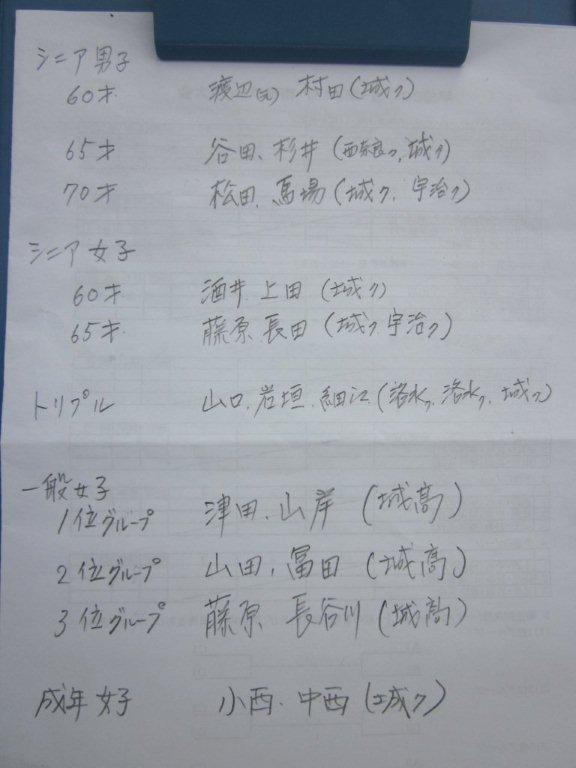 シニア男子
60才 渡辺(元) 村田(城ク)
65才 谷田、杉井(西京良ク,城ク)
70才 松田、馬場(城ク、宇治ク)
シニア女子
60才 酒井 上田(城ク)
65才 藤原 長田(城ク 宇治ク)
トリプル 山口、岩垣、細江(洛水ク、洛水ク、城ク)
一般女子
1位グループ 津田、山岸(城高)
2位グループ 山田、冨田(城高)
3位グループ 藤原 長谷川(城高)
成年女子 小西、中西(城ク)